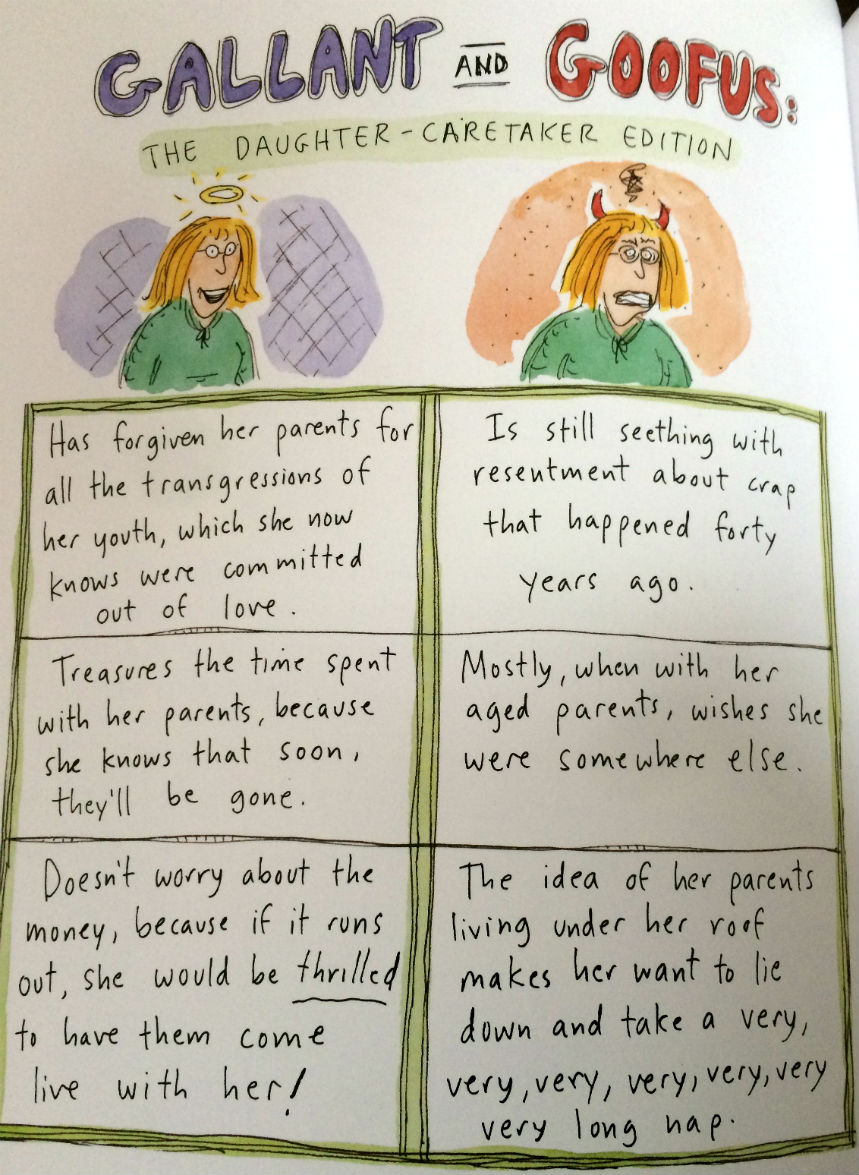 GALLANT AND GOOFUS:
THE DAUGHTER-CARETAKER EDITION
Has forgiven her parents for
all the transgressions of
her youth, which she now
knows were committed
out of love.
Is still seething with
resentment about crap
that happened forty
years ago.
Treasures the time spent
with her parents, because
she knows that soon,
they'll be gone.
Mostly, when with her
aged parents, wishes she
were somewhere else.
Doesn't worry about the
money, because if it runs
out, she would be thrilled
to have them come
live with her!
The idea of her parents
living under her roof
makes her want to lie
down and take a very,
very, very, very, very, very
very long nap.